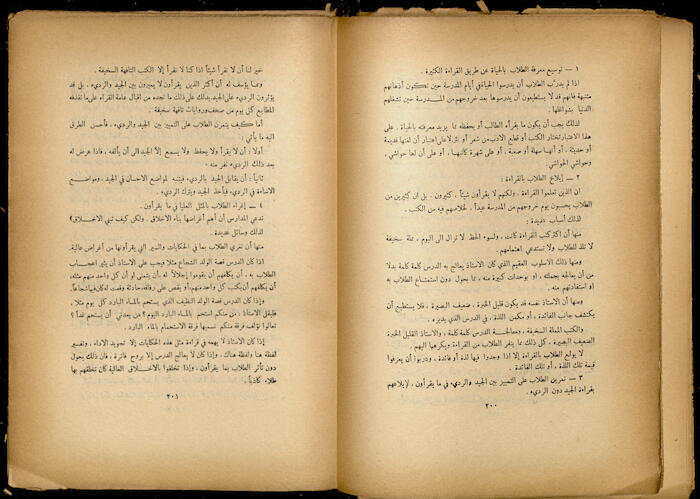 ١ — توسيع معرفة الطلاب بالحياة عن طريق القراءة الكثيرة .
اذا لم يدرب الطلاب أن يدرسوا الحياة في أيام المدرسة حين تكون أذهانهم
متنبهة فانهم قد لا يستطيعون أن يدرسوها بعد خروجهم من المدرسة حين تشغلهم
الدنيا بشواغلها :
لذلك يجب أن يكون ما يقرأه الطالب أو يحفظه مما يزيد معرفته بالحياة . على
هذا الاعتبار تختار الكتب أو قطع الادب من شعر أو نثر لا على اعتبار أن لغتها قديمة
أو حديثة ، أو انها سهلة أو صعبة ، أو على شهرة كاتبها ، أو على أن لها حواشي
وحواشي الحواشي .
٢ — إيلاع الطلاب بالقراءة :
ان الذين تعلموا القراءة ، ولكنهم لا يقرأون شيئاً ، كثيرون . بل ان كثيرين من
الطلاب يحسبون يوم خروجهم من المدرسة عيداً . لخلاصهم فيه من الكتب .
لذلك أسباب عديدة :
منها أن اكثر كتب القراءة كانت ، ولسوء الحظ لا تزال الى اليوم ، مملة سخيفة
لا تلذ للطلاب ولا تستدعي اهتمامهم .
ومنها ذلك الاسلوب العقيم الذي كان الاستاذ يعالج به الدرس كلمة كلمة بدلا
من أن يعالجه بجملته ، أو بوحدات كبيرة منه ، مما يحول دون استمتاع الطلاب به
أو استفادتهم منه .
ومنها أن الاستاذ نفسه قد يكون قليل الخبرة ، ضعيف البصيرة ، فلا يستطيع أن
يكتشف جانب الفائدة ، أو مكمن اللذة ، في الدرس الذي يديره .
والكتب المملة السخيفة ، ومعالجة الدرس كلمة كلمة ، والاستاذ القليل الخبرة
الضعيف البصيرة ، كل ذلك مما ينفر الطلاب من القراءة ويكرهها اليهم .
لا يولع الطلاب بالقراءة إلا اذا وجدوا فيها لذة أو فائدة ، ودربوا أن يعرفوا
قيمة تلك اللذة ، أو تلك الفائدة .
٣ — تمرين الطلاب على التمييز بين الجيد والرديء في ما يقرأون ، لإيلاعهم
بقراءة الجيد دون الرديء .
٢٠٠
خير لنا أن لا نقرأ شيئاً اذا كنا لا نقرأ إلا الكتب التافهة السخيفة .
ومما يؤسف له أن أكثر الذين يقرأون لا يميزون بين الجيد والرديء ، بل قد
يؤثرون الرديء على الجيد. يدلك على ذلك ما نجده من اقبال عامة القراء على ما تقذفه
المطابع كل يوم من صحف وروايات تافهة سخيفة .
أما كيف يتمرن الطلاب على التمييز بين الجيد والرديء ، فأحسن الطرق
اليه ما يأتي :
أولا : أن لا يقرأ ولا يحفظ ولا يسمع إلا الجيد الى أن يألفه ، فاذا عرض له
بعد ذلك الرديء نفر منه .
ثانياً : أن يقابل الجيد بالرديء فينتبه لمواضع الاحسان في الجيد ، ومواضع
الاساءة في الرديء فيأخذ الجيد ويترك الرديء .
٤ — إغراء الطلاب بالمثل العليا في ما يقرأون .
تدعي المدارس أن أهم أغراضها بناء الاخلاق . ولكن كيف تبنى الاخلاق ؟
لذلك وسائل عديدة .
منها أن نغري الطلاب بما في الحكايات والسير التي يقرأونها من أغراض عالية.
اذا كان الدرس قصة الولد الشجاع مثلا فيجب على الاستاذ أن يثير اعجاب
الطلاب به ، أن يكلفهم أن يقوموا إجلالاً له أن يتمنى لو أن كل واحد منهم مثله،
أن يكلفهم أن يكتب كل واحد منهم أو يقص على رفاقه حادثة وقعت له كان فيها شجاعاً.
وإذا كان الدرس قصة الولد النظيف الذي يستحم بالماء البارد كل يوم مثلا ،
فليقل الاستاذ : من منكم استحم بالماء البارد اليوم ؟ من يعدني أن يستحم غداً ؟
تعالوا نؤلف فرقة منكم نسميها فرقة الاستحمام بالماء البارد .
إذا كان الاستاذ لا يهمه في قراءة مثل هذه الحكايات إلا تجويد الاداء ، وتفسير
لفظة هنا ولفظة هناك ، وإذا كان لا يعالج الدرس إلا بروح فاترة ، فان ذلك يحول
دون تأثر الطلاب بما يقرأون ، وإذا تخلقوا بالاخلاق العالية كان تخلقهم بها
طلاء كاذباً .
٢٠١